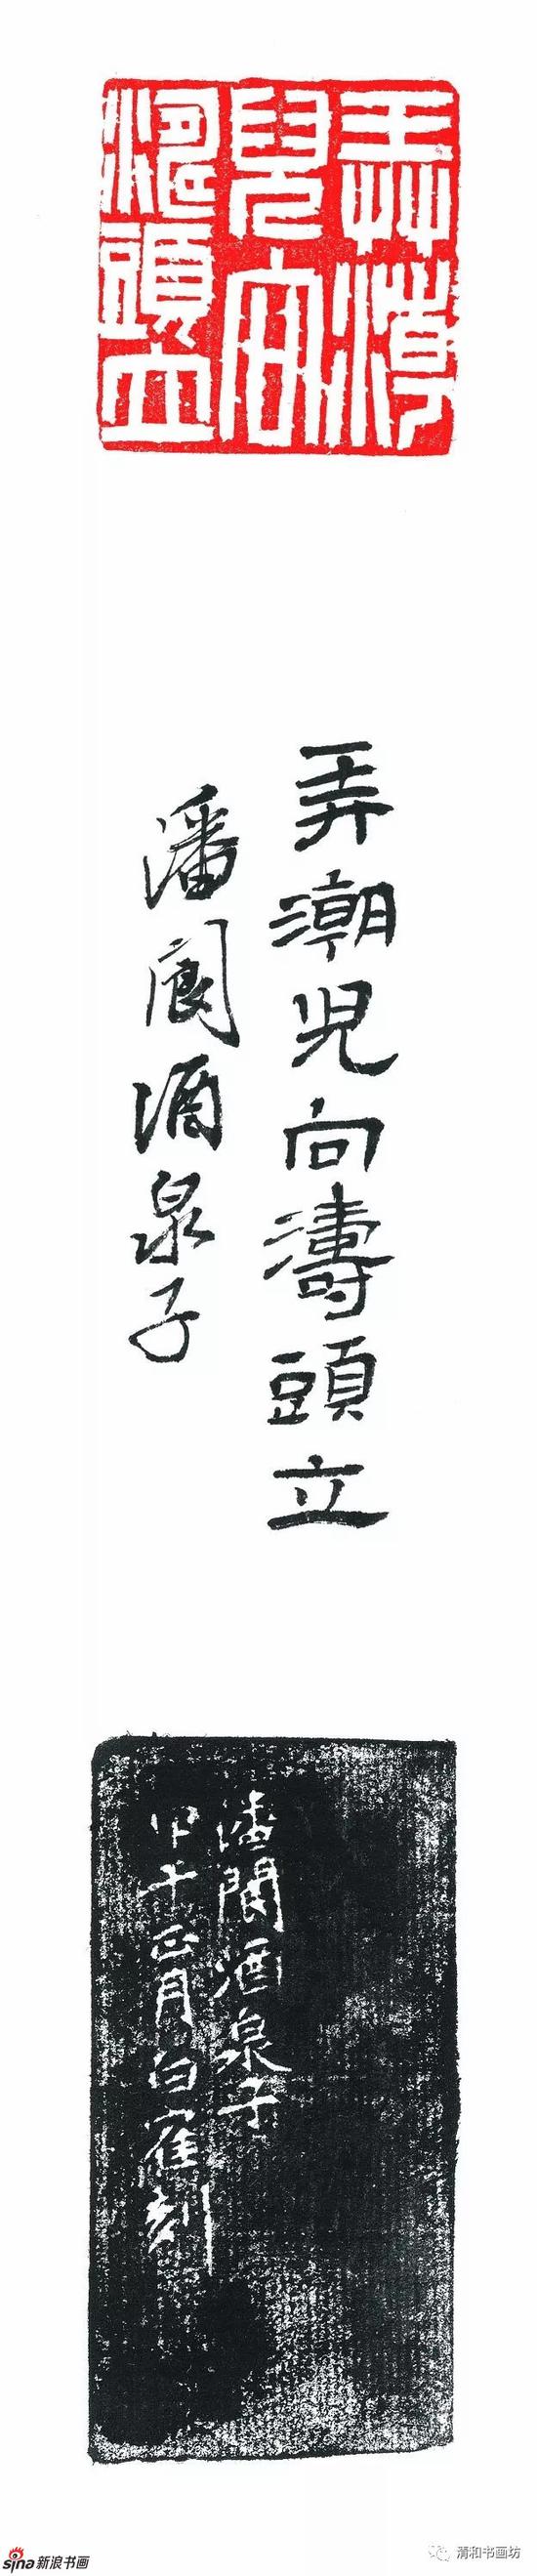 弄潮
兒向
濤頭立
弄潮児向濤頭立
潘阆酒泉子
潘閬酒泉子
甲午正月白隺刻
sina新浪书画
清和书画坊